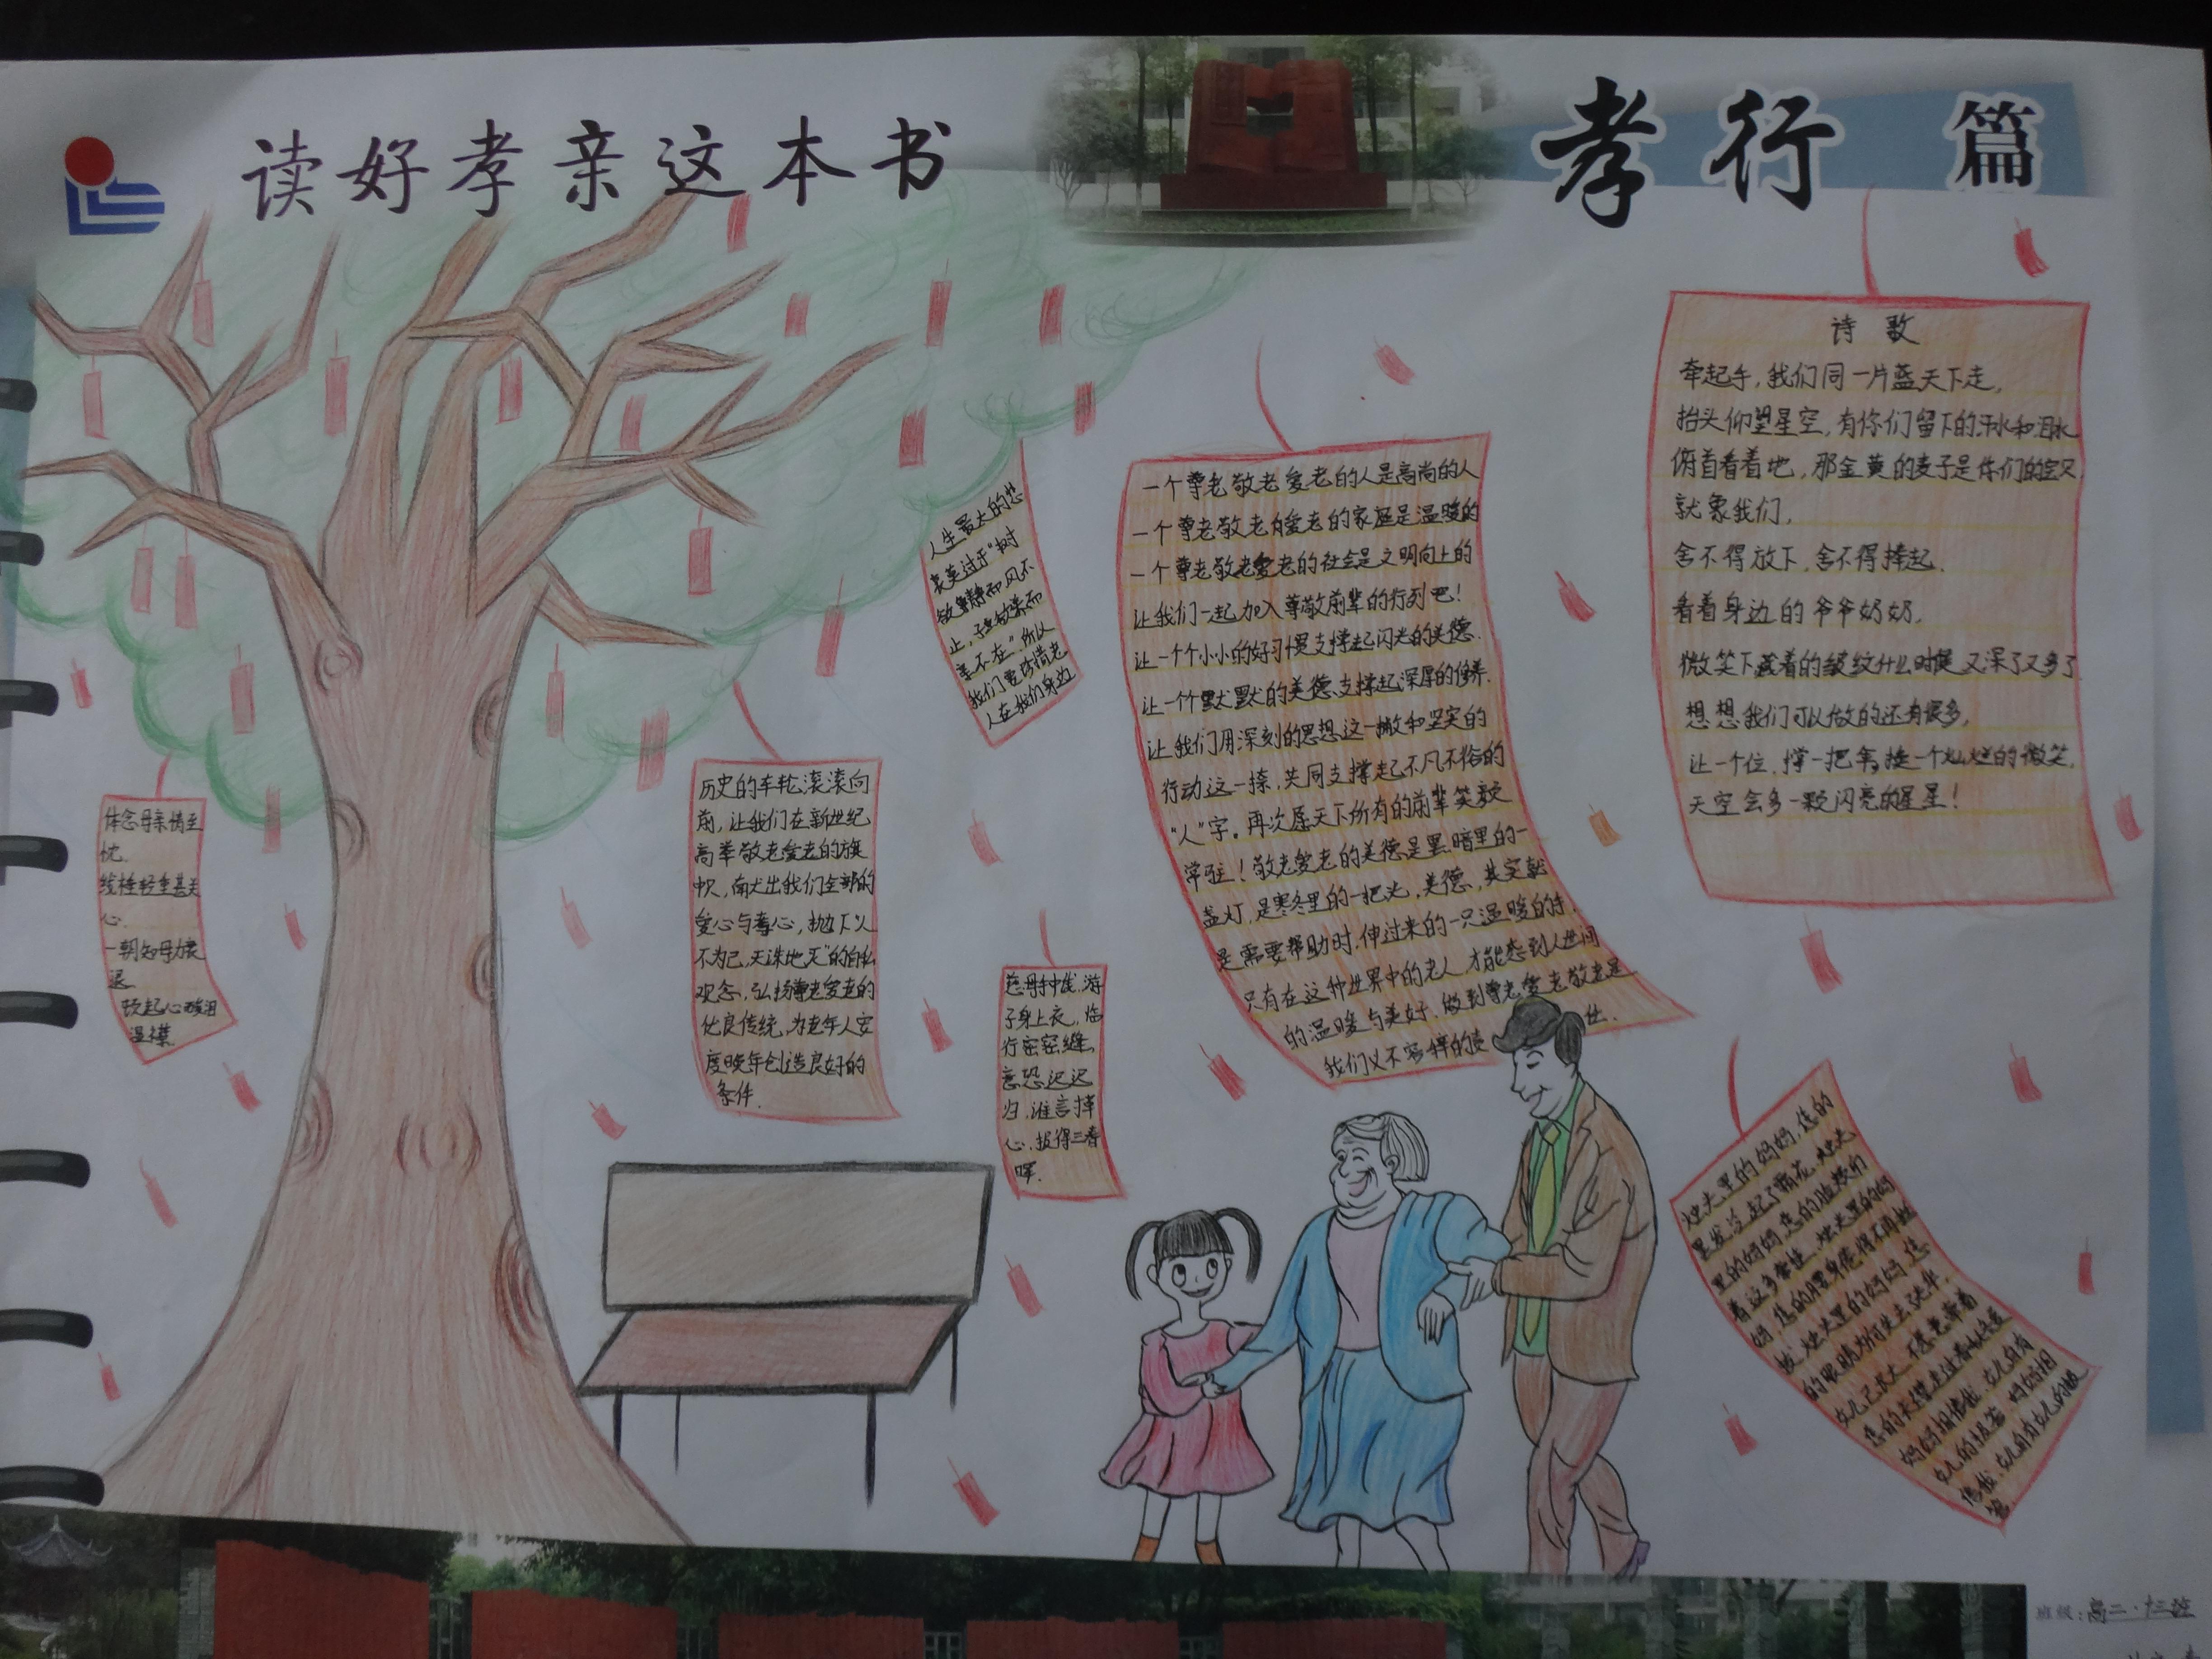 读好孝亲这本书
孝行 篇
诗歌
牵起手，我们同一片蓝天下走，
抬头仰望星空，有你们留下的汗水和泪水
俯首看着地，那金黄的麦子是你们的
就象我们，
舍不得放下，舍不得捧起，
看着身边的爷爷奶奶，
微笑下藏着的皱纹什么时候又深了又多了
想想我们可以做的还有很多，
让一个位，撑一把伞，换一个灿烂的微笑，
天空会多一颗闪亮的星星！
一个尊老敬老爱老的人是高尚的人
一个尊老敬老爱老的家庭是温暖的
一个尊老敬老爱老的社会是文明向上的
让我们一起加入尊敬前辈的行列吧！
让一个个小小的好习惯支撑起闪光的美德.
让一个个默默的美德支撑起深厚的修养.
让我们用深刻的思想这一撇和坚实的
行动这一捺，共同支撑起不凡不俗的
“人”字。再次愿天下所有的前辈笑颜
常驻！敬老爱老的美德是黑暗里的一
盏灯，是寒冬里的一把火，美德，其实就
是需要帮助时，伸过来的一只温暖的手，
只有在这种世界中的老人，才能感到人世间
的温暖与美好，做到尊老爱老敬老是
我们义不容辞的责
人生最大的悲
哀莫过于“树
欲静而风不
止，子欲养而
亲不在”所以
我们要珍惜老
人在我们身边
历史的车轮滚滚向
前，让我们在新世纪
高举敬老爱老的旗
帜，献出我们全部的
爱心与孝心，抛下“人
不为己，天诛地灭”的自私
观念，弘扬尊老爱老的
优良传统，为老年人安
度晚年创造良好的
条件.
体念母亲情至
忱.
线桂轻重甚关
心.
一朝知母力衰
退
饮起心酸泪
湿襟.
慈母手中线，游
子身上衣，临
行密密缝，
意恐迟迟
归，谁言
心，报得三春
晖.
灶头里的妈妈，您的
里的妈妈，您的
着这多
妈，您的腰身
灶头里的妈妈，您
的眼睛为何
女儿已长大
妈妈相信我，女儿自有
女儿的
信我，女儿自有女儿的
班级：高二·十三班